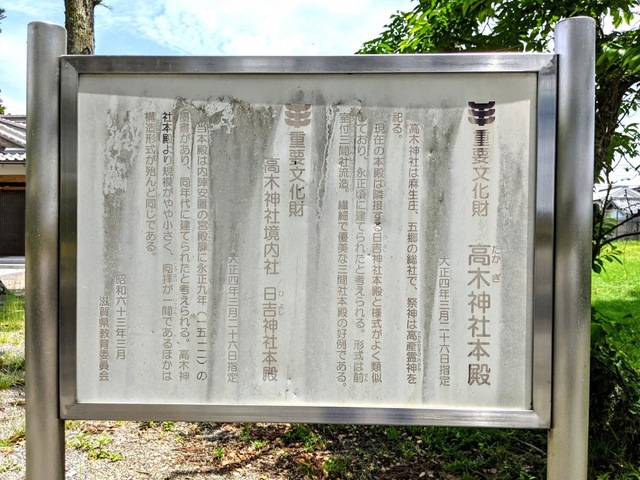 重要文化財 高木神社本殿
たか ぎ
大正四年三月二十六日指定
高木神社は麻生庄、五郷の総社で、祭神は高産霊神を
祀る。
現在の本殿は隣接する日吉神社本殿と様式がよく類似
しており、永正頃に建てられたと考えられる。形式は前
室付三間社流造。繊細で優美な三間社本殿の好例である。
重要文化財
高木神社境内社 日吉神社本殿
ひ よし
大正四年三月二十六日指定
当本殿は内陣安置の宮殿扉に永正九年(一五一二)の
墨書があり、同年代に建てられたと考えられる。高木神
社本殿より規模がやや小さく、向拝が一間であるほかは
構造形式が殆んど同じである。
昭和六十三年三月
滋賀県教育委員会